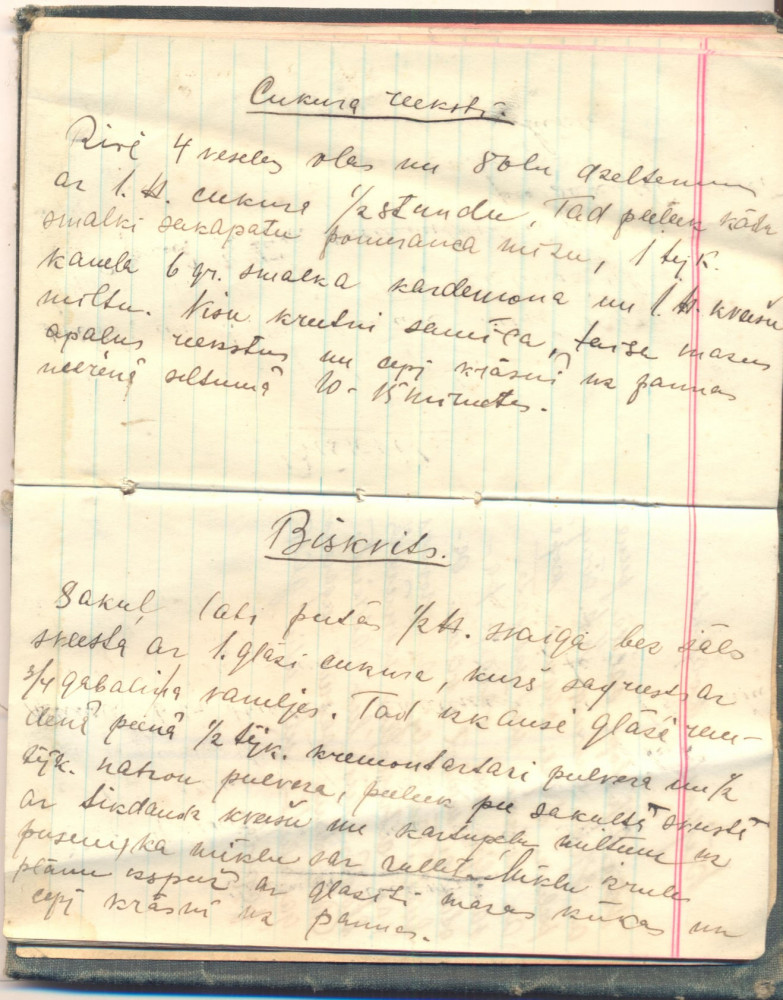 Cukura rieksti.
Rivē 4 veselas olas un 8 olu dzeltenum
ar 1. ℔. cukura 1/2 stundu, Tad pieliek klāt
smalki sakapatu pomeranča mizu, 1 tējk.
kanela 6 gr. smalka kardemona un 1 ℔. kviešu
miltu. Visu krietni samīca, taisa mazus
apalus riekstus un cepj krāsnī uz pannas
mērenā siltumā 10 - 15 minutes.
Biskvits.
Sakuļ labi putās 1/2 ℔. svaiga bez sāls
sviesta ar 1. glāzi cukura, kurš sagrusts ar
3/4 gabaliņa vaniljes. Tad izkausē glāzē rem-
denā pienā 1/2 tējk. kremontartari pulvera un 1/2
tējk. natron pulvera, pieliek pie sakultā sviestā
ar tikdauds kviešu un kartupeļu miltiem uz
pusēm, ka mīklu var rullēt. Mīklu izrullē
plānu izspiež ar glāzīti mazas kūkas un
cepj krāsnī uz pannas.